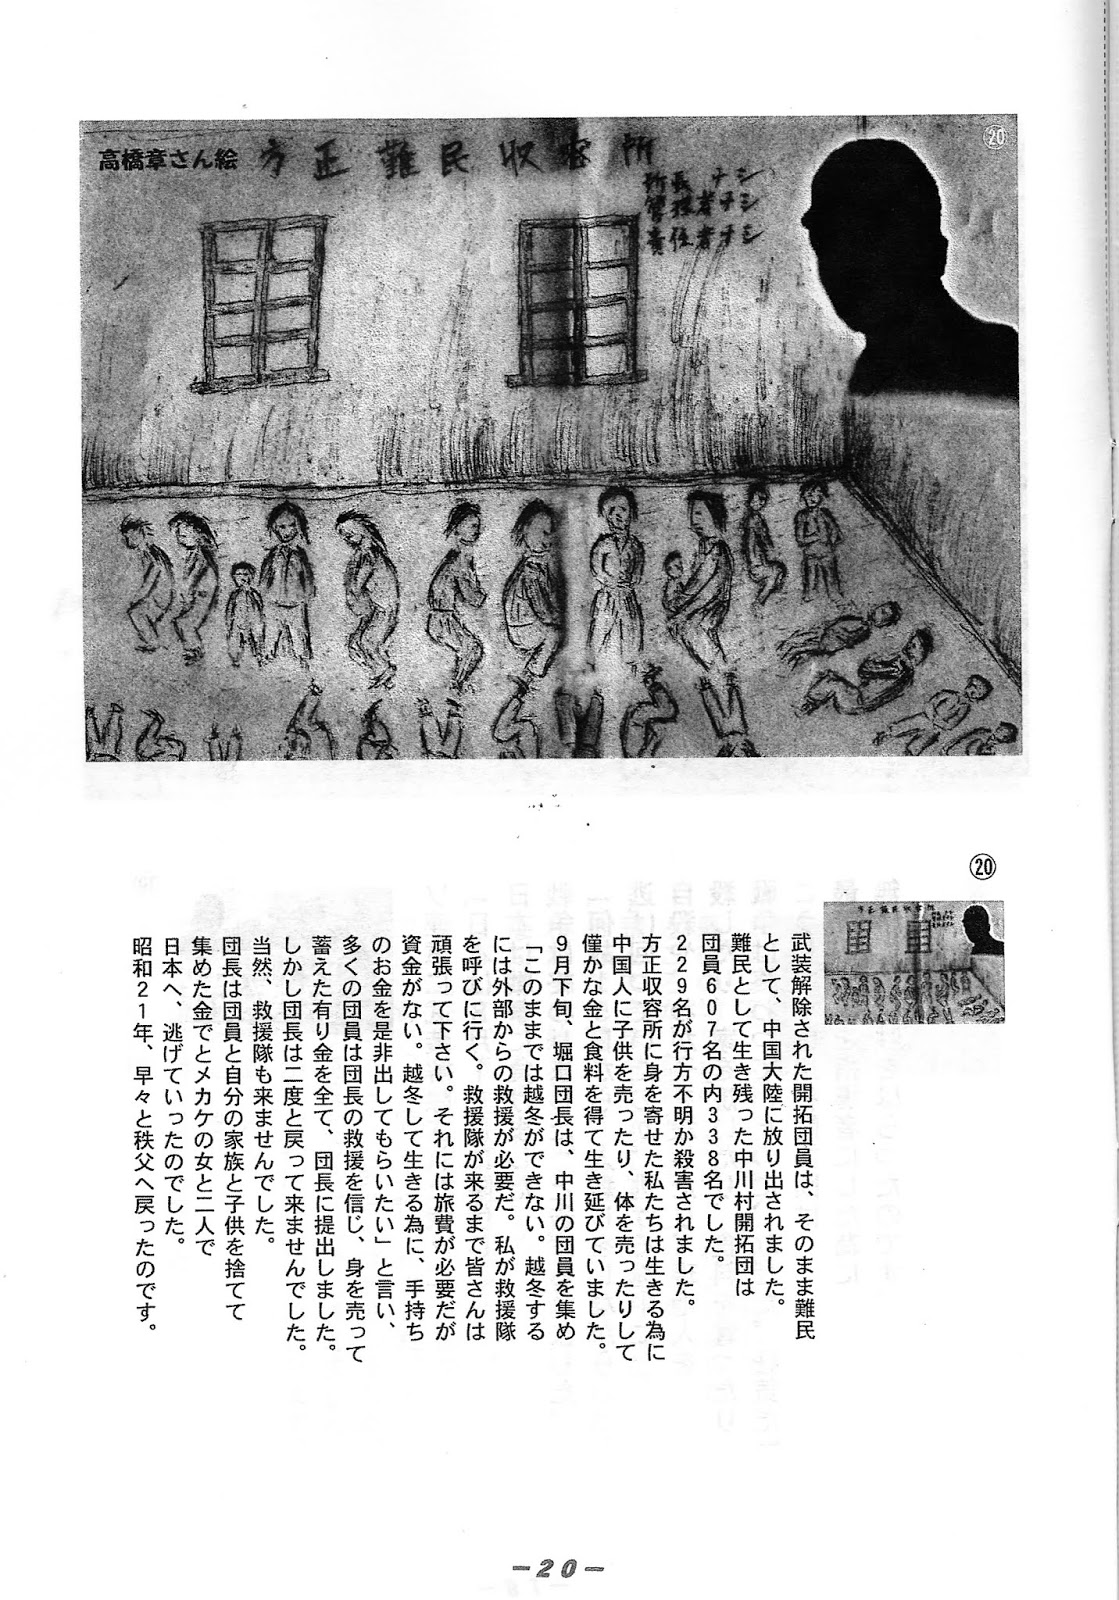 高橋章さん絵
方正難民収容所
⑳
所長ナシ
管理者ナシ
責任者ナシ
⑳
武装解除された開拓団員は、そのまま難民
として、中国大陸に放り出されました。
難民として生き残った中川村開拓団は
団員607名の内338名でした。
229名が行方不明か殺害されました。
方正収容所に身を寄せた私たちは生きる為に
中国人に子供を売ったり、体を売ったりして
僅かな金と食料を得て生き延びていました。
9月下旬、堀口団長は、中川の団員を集め
「このままでは越冬ができない。越冬する
には外部からの救援が必要だ。私が救援隊
を呼びに行く。救援隊が来るまで皆さんは
頑張って下さい。それには旅費が必要だが
資金がない。越冬して生きる為に、手持ち
のお金を是非出してもらいたい」と言い、
多くの団員は団長の救援を信じ、身を売って
蓄えた有り金を全て、団長に提出しました。
しかし団長は二度と戻って来ませんでした。
当然、救援隊も来ませんでした。
団長は団員と自分の家族と子供を捨てて
集めた金でとメカケの女と二人で
日本へ、逃げていったのでした。
昭和21年、早々と秩父へ戻ったのです。
－20－